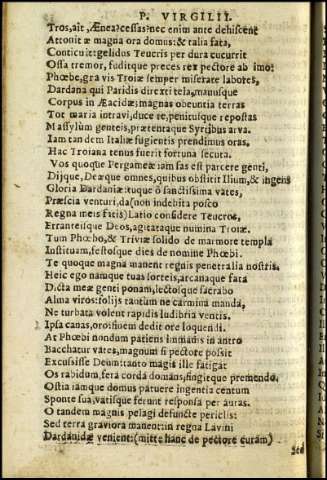 P. VIRGILII.
Tros, ait, Ænea? cessas? nec enim ante dehiscent
Attonitæ magna ora domus: & talia fata,
Conticuit: gelidus Teucris per dura cucurrit
Ossa tremor, fuditque preces rex pectore ab imo:
Phœbe, gravis Troiæ semper miserate labores,
Dardana qui Paridis direxti tela, manusque
Corpus in Æacidæ; magnas obeuntia terras
Tot maria intravi, duce te, penitusque repostas
Massylûm genteis, prætentaque Syrtibus arva.
Iam tandem Italiæ fugientis prendimus oras,
Hac Troiana tenus fuerit fortuna secuta.
Vos quoque Pergameæ iam fas est parcere genti,
Dijque, Deæque omnes, quibus obstitit Ilium, & ingens
Gloria Dardaniæ: tuque ô sanctissima vates,
Præscia venturi, da (non indebita posco
Regna meis fatis) Latio considere Teucros,
Erranteisque Deos, agitataque numina Troiæ.
Tum Phœbo, & Triviæ solido de marmore templa
Instituam, festosque dies de nomine Phœbi.
Te quoque magna manent regnis penetralia nostris.
Heic ego namque tuas sorteis, arcanaque fata
Dicta meæ genti ponam, lectosque sacrabo
Alma viros: folijs tantùm ne carmina manda,
Ne turbata volent rapidis ludibria ventis.
Ipsa canas, oro: finem dedit ore loquendi.
At Phœbi nondum patiens immanis in antro
Bacchatur vates, magnum si pectore possit
Excussisse Deum: tanto magis ille fatigat
Os rabidum, fera corda domans, fingitque premendo.
Ostia iamque domus patuere ingentia centum
Sponte sua, vatisque ferunt responsa per auras.
O tandem magnis pelagi defuncte periclis!
Sed terra graviora manent: in regna Lavinî
Dardanidæ venient: (mitte hanc de pectore curam)
Sed